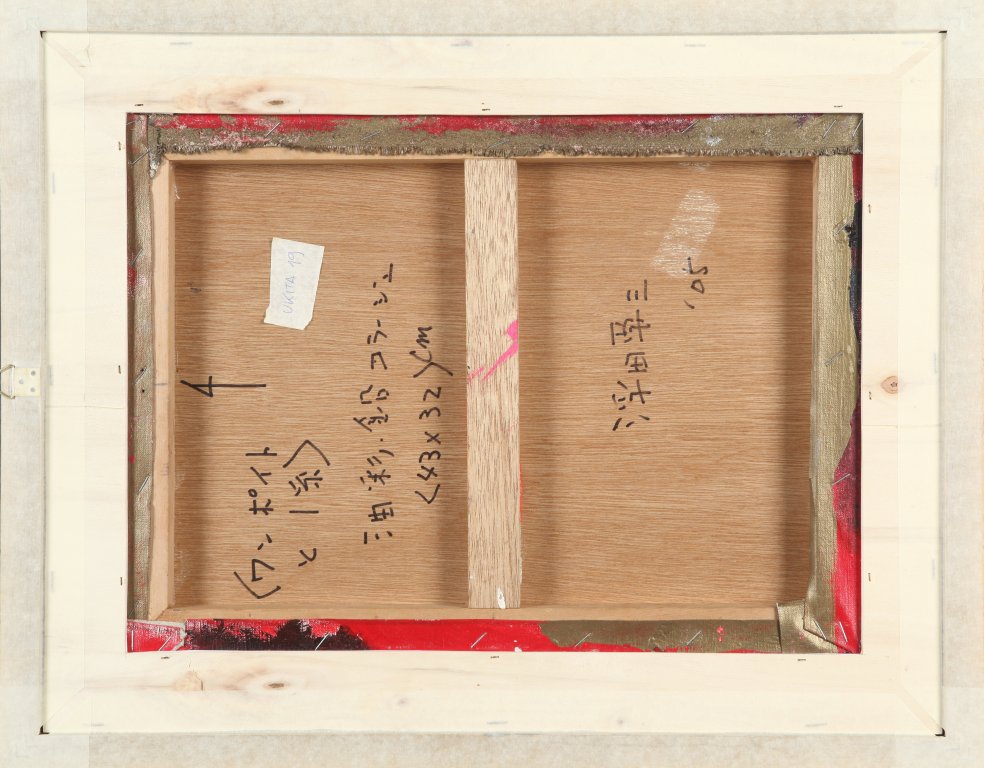 (ワンポイト
と1糸)
油彩・鉛コラージュ
(43×32)cm
浮田要三
'05
UKITA 19